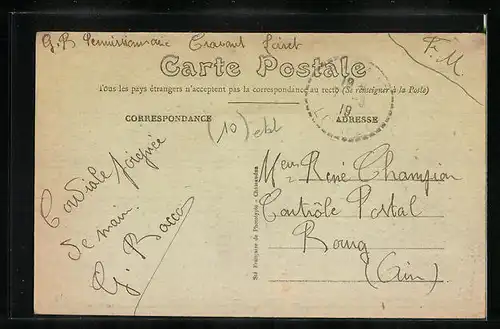 G. B Permissionnaire Loiret
F. M.
Carte Postale
Tous les pays étrangers n'acceptent pas la correspondance au recto (Se renseigner à la Poste)
CORRESPONDANCE
ADRESSE
19
19
(10)
Cordiale poignée
de main.
G. Bacco
Sté Française de Phototypie - Châteaudun
René Champion
Contrôle Postal
Bourg
(Ain)